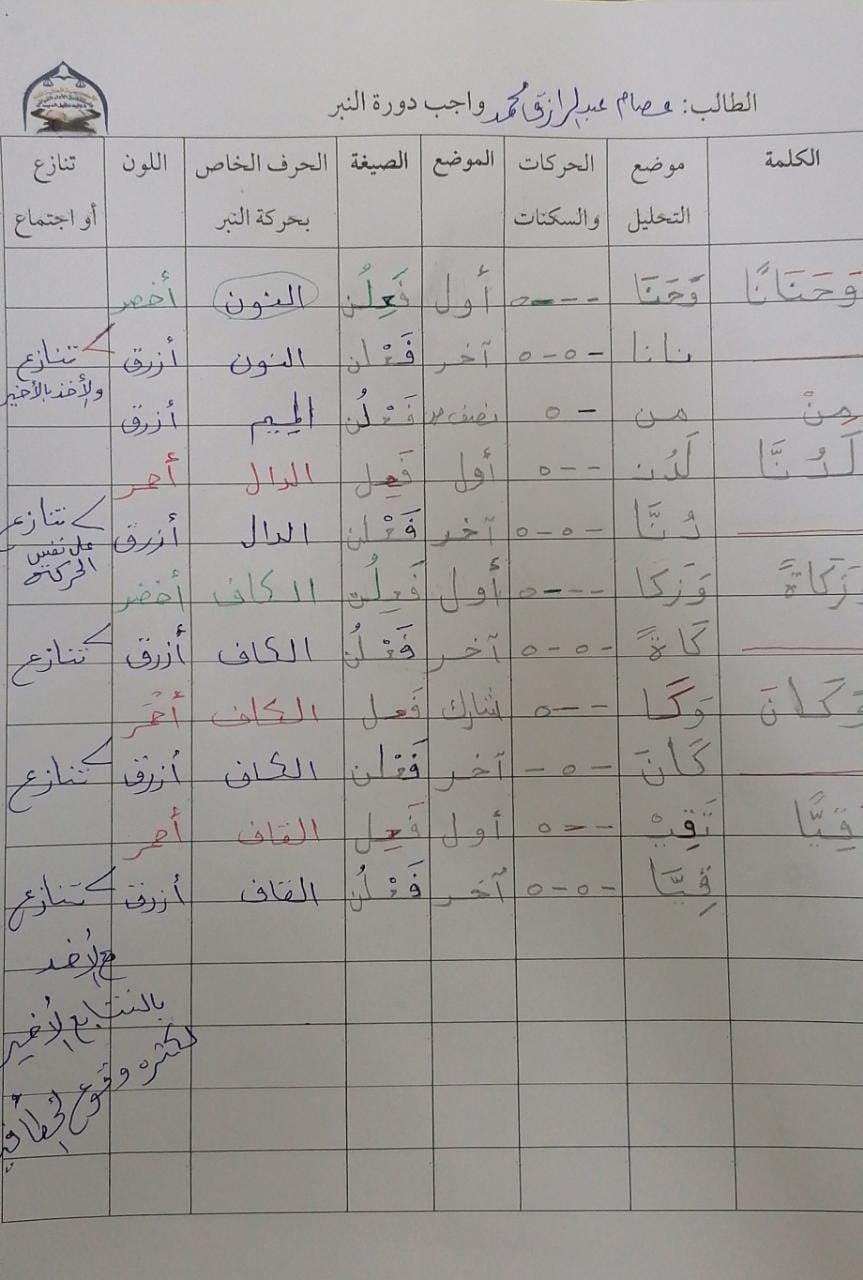 الطالب: عصام عبد الرازق محمد واجب دورة النبر
الكلمة موضع التحليل الحركات والسكنات الموضع الصيغة الحرف الخاص بحركة النبر اللون تنازع أو اجتماع
وَحَنَانًا وَحَنَا ---o أول فَعِلُن النون أخضر
نانا -o-o آخر فَعْلن النون أزرق تنازع
والأخذ بالأخير
مِنْ من -o فَعْلُن الميم أزرق
لَدُنَّا لَدُن --o أول فَعِل الدال أحمر
دُنَّا -o-o آخر فَعْلن الدال أزرق تنازع
على نفس
الحركة
وَزَكَاةً وَزكَا ---o أول فَعِلُن الكاف أخضر
كَاةً -o-o آخر فَعْلُن الكاف أزرق تنازع
وَكَانَ وَكَا --o شارك فَعل الكاف أحمر
كَانَ -o- آخر فَعْلن الكاف أزرق تنازع
تَقِيْ --o أول فَعِل القاف أحمر
قِيَّا -o-o آخر فَعْلُن القاف أزرق تنازع
مع الأخذ
بالتتابع الأخير
لكثرة وقوع الخطأ فيه